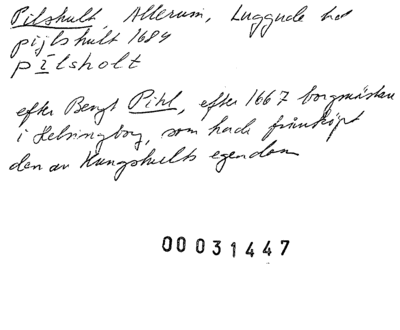 Pilshult, Allerum, Luggude hd
pijlshult 1684
pilsholt
efter Bengt Pihl, efter 1667 borgmästare
i Helsingborg, som hade frånköpt
den av Kungshults egendom
00031447